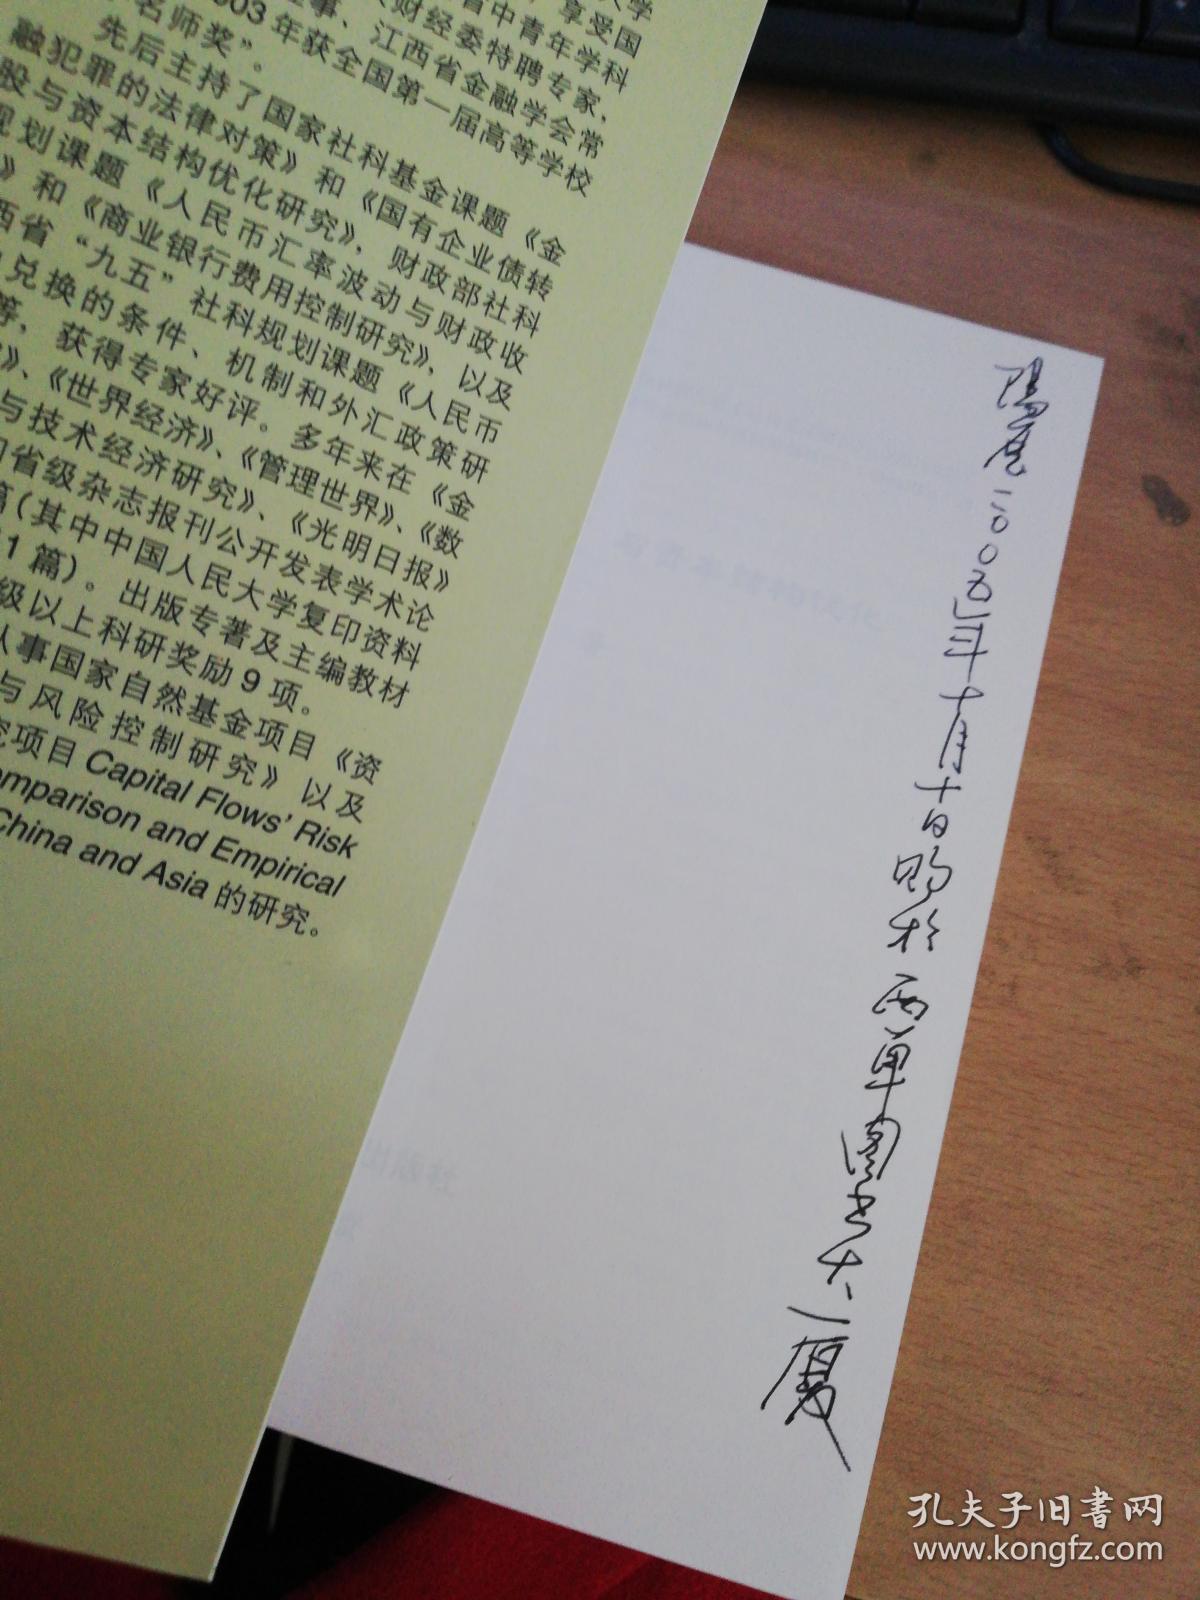 享受国
省中青年学科
财经委特聘专家，
江西省金融学会常
03年获全国第一届高等学校
名师奖”。
先后主持了国家社科基金课题《金
融犯罪的法律对策》和《国有企业债转
股与资本结构优化研究》，财政部社科
规划课题《人民币汇率波动与财政收
》和《商业银行费用控制研究》，以及
西省“九五”社科规划课题《人民币
兑换的条件、机制和外汇政策研
等，获得专家好评。多年来在《金
》、《世界经济》、《管理世界》、《数
与技术经济研究》、《光明日报》
省级杂志报刊公开发表学术论
篇（其中中国人民大学复印资料
1篇）。出版专著及主编教材
级以上科研奖励9项。
从事国家自然基金项目《资
与风险控制研究》以及
究项目Capital Flows' Risk
omparison and Empirical
China and Asia的研究。
二〇〇五年十月十日购于西单图书大厦
孔夫子旧书网
www.kongfz.com